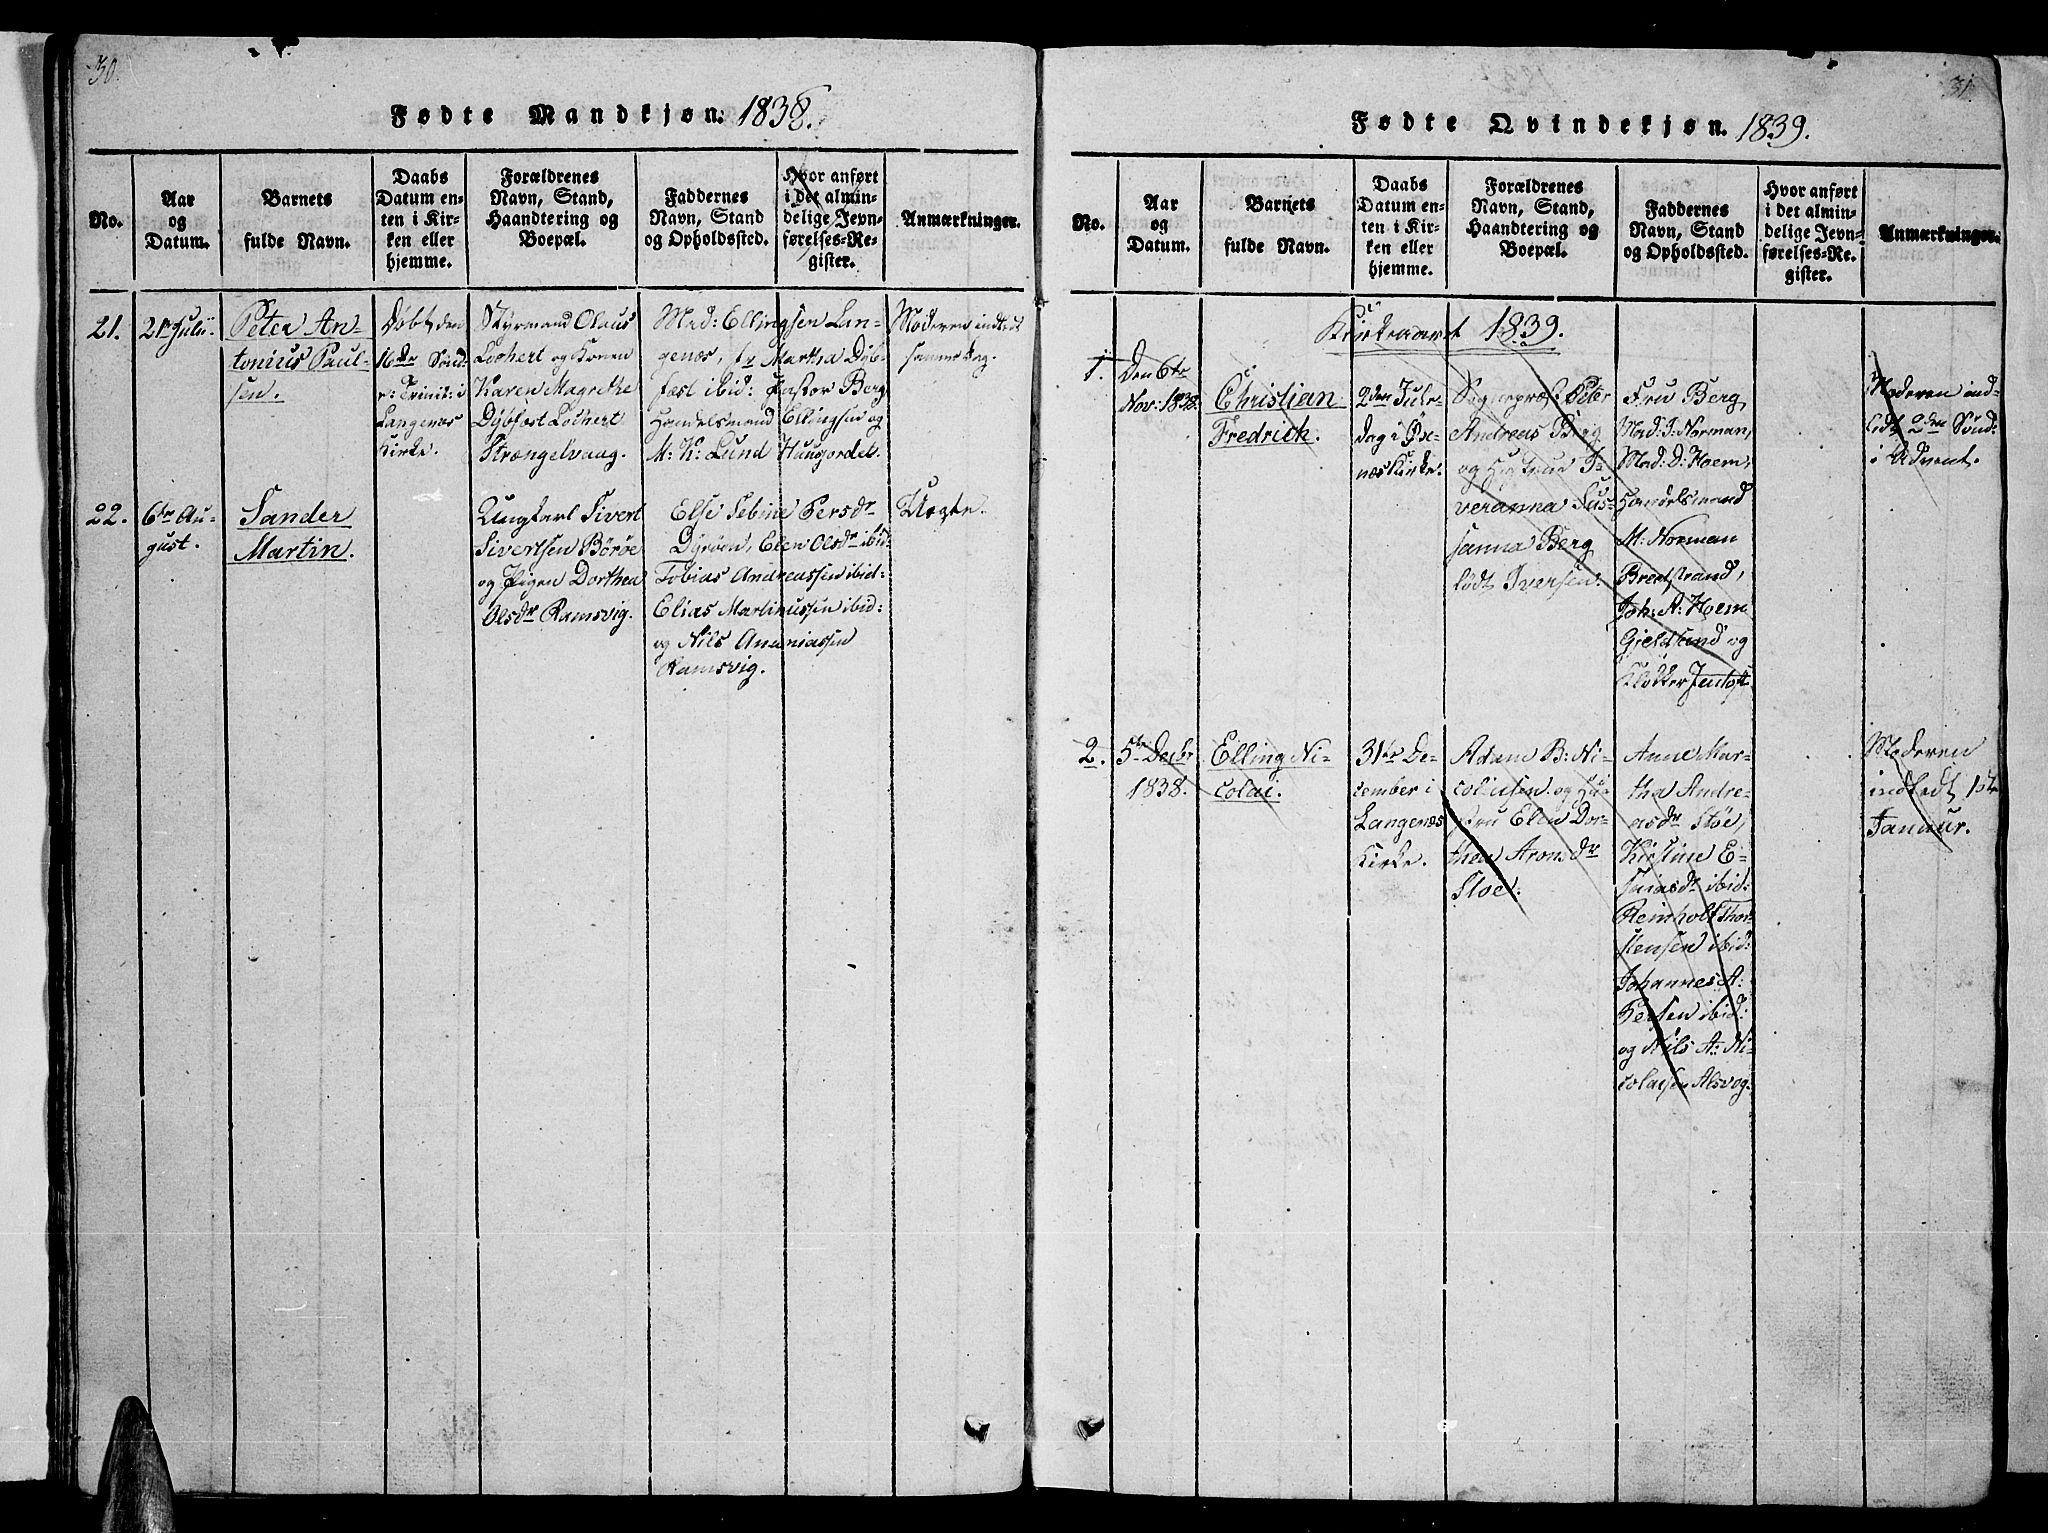 30.
Fødte Mandkjøn. 1838.
No.
Aar
og
Datum.
Barnets
fulde Navn.
Daabs
Datum en-
ten i Kir-
ken eller
hjemme.
Forældrenes
Navn, Stand,
Haandtering og
Boepæl.
Faddernes
Navn, Stand
og Opholdssted.
Hvor anført
i det almin-
delige Jevn-
førelses-Re-
gister.
Anmærkninger.
21.
21de Julii
Peter An-
tonius Paul-
sen.
Døbt den
16de Sønd:
e: Trinit: i
Langenæs
Kirke.
Styrmand Olaus
Lochert og Konen
Karen Magrethe
Dybfest Lochert
Strængelvaag.
Mad: Ellingsen Lan-
genæs, Martha Dyb-
fest ibid: Pastor Berg
Handelsmand Ellingsen og
M: K: Lund Haugordet.
Moderen indledt
samme dag.
22.
6te Au-
gust.
Sander
Martin.
Ungkarl Sivert
Sivertsen Börøe
og Pigen Dorthea
Olsdr Ramsvig.
Else Sebine Persdr
Dyrøen, Elen Olsdr ibid:
Tobias Andreassen ibid:
Elias Martinussen ibid:
og Nils Ananiassen
Ramsvig.
Uægte.
31.
Fødte Qvindekjøn. 1839.
No.
Aar
og
Datum.
Barnets
fulde Navn.
Daabs
Datum en-
ten i Kir-
ken eller
hjemme.
Forældrenes
Navn, Stand,
Haandtering og
Boepæl.
Faddernes
Navn, Stand
og Opholdssted.
Hvor anført
i det almin-
delige Jevn-
førelses-Re-
gister.
Anmærkninger.
Kirkeaaret 1839.
1.
Den 6te
Nov: 1838.
Christian
Fredrich.
2den Jule-
dag i Øx-
næs Kirke.
Sognepræst Peter
Andreas Berg
og Hustrue I-
veranna Sus-
sanna Berg
født Iversen.
Fru Berg,
Mad: J: Norman,
Mad: D: Hoem,
Handelsmand
M: Norman
Bredstrand,
Joh: A: Hoem
Gieldsund og
Klokker Jentoft
Moderen ind-
ledt 2den Sønd:
i Advent.
2.
5te Decbr
1838.
Elling Ni-
colai.
31te De-
cember i
Langenæs
Kirke.
Adam B: Ni-
colaisen og Hu-
stru Elen Dor-
thea Aronsdr
Støe.
Anne Mar-
tha Andre-
asdr Støe,
Kirstine E-
saiasdr ibid:
Reinholt Thor-
stensen ibid:
Johannes A:
ibid:
og Nils A: Ni-
colaisen Alsvog.
Moderen
indledt 1ste
Januar.